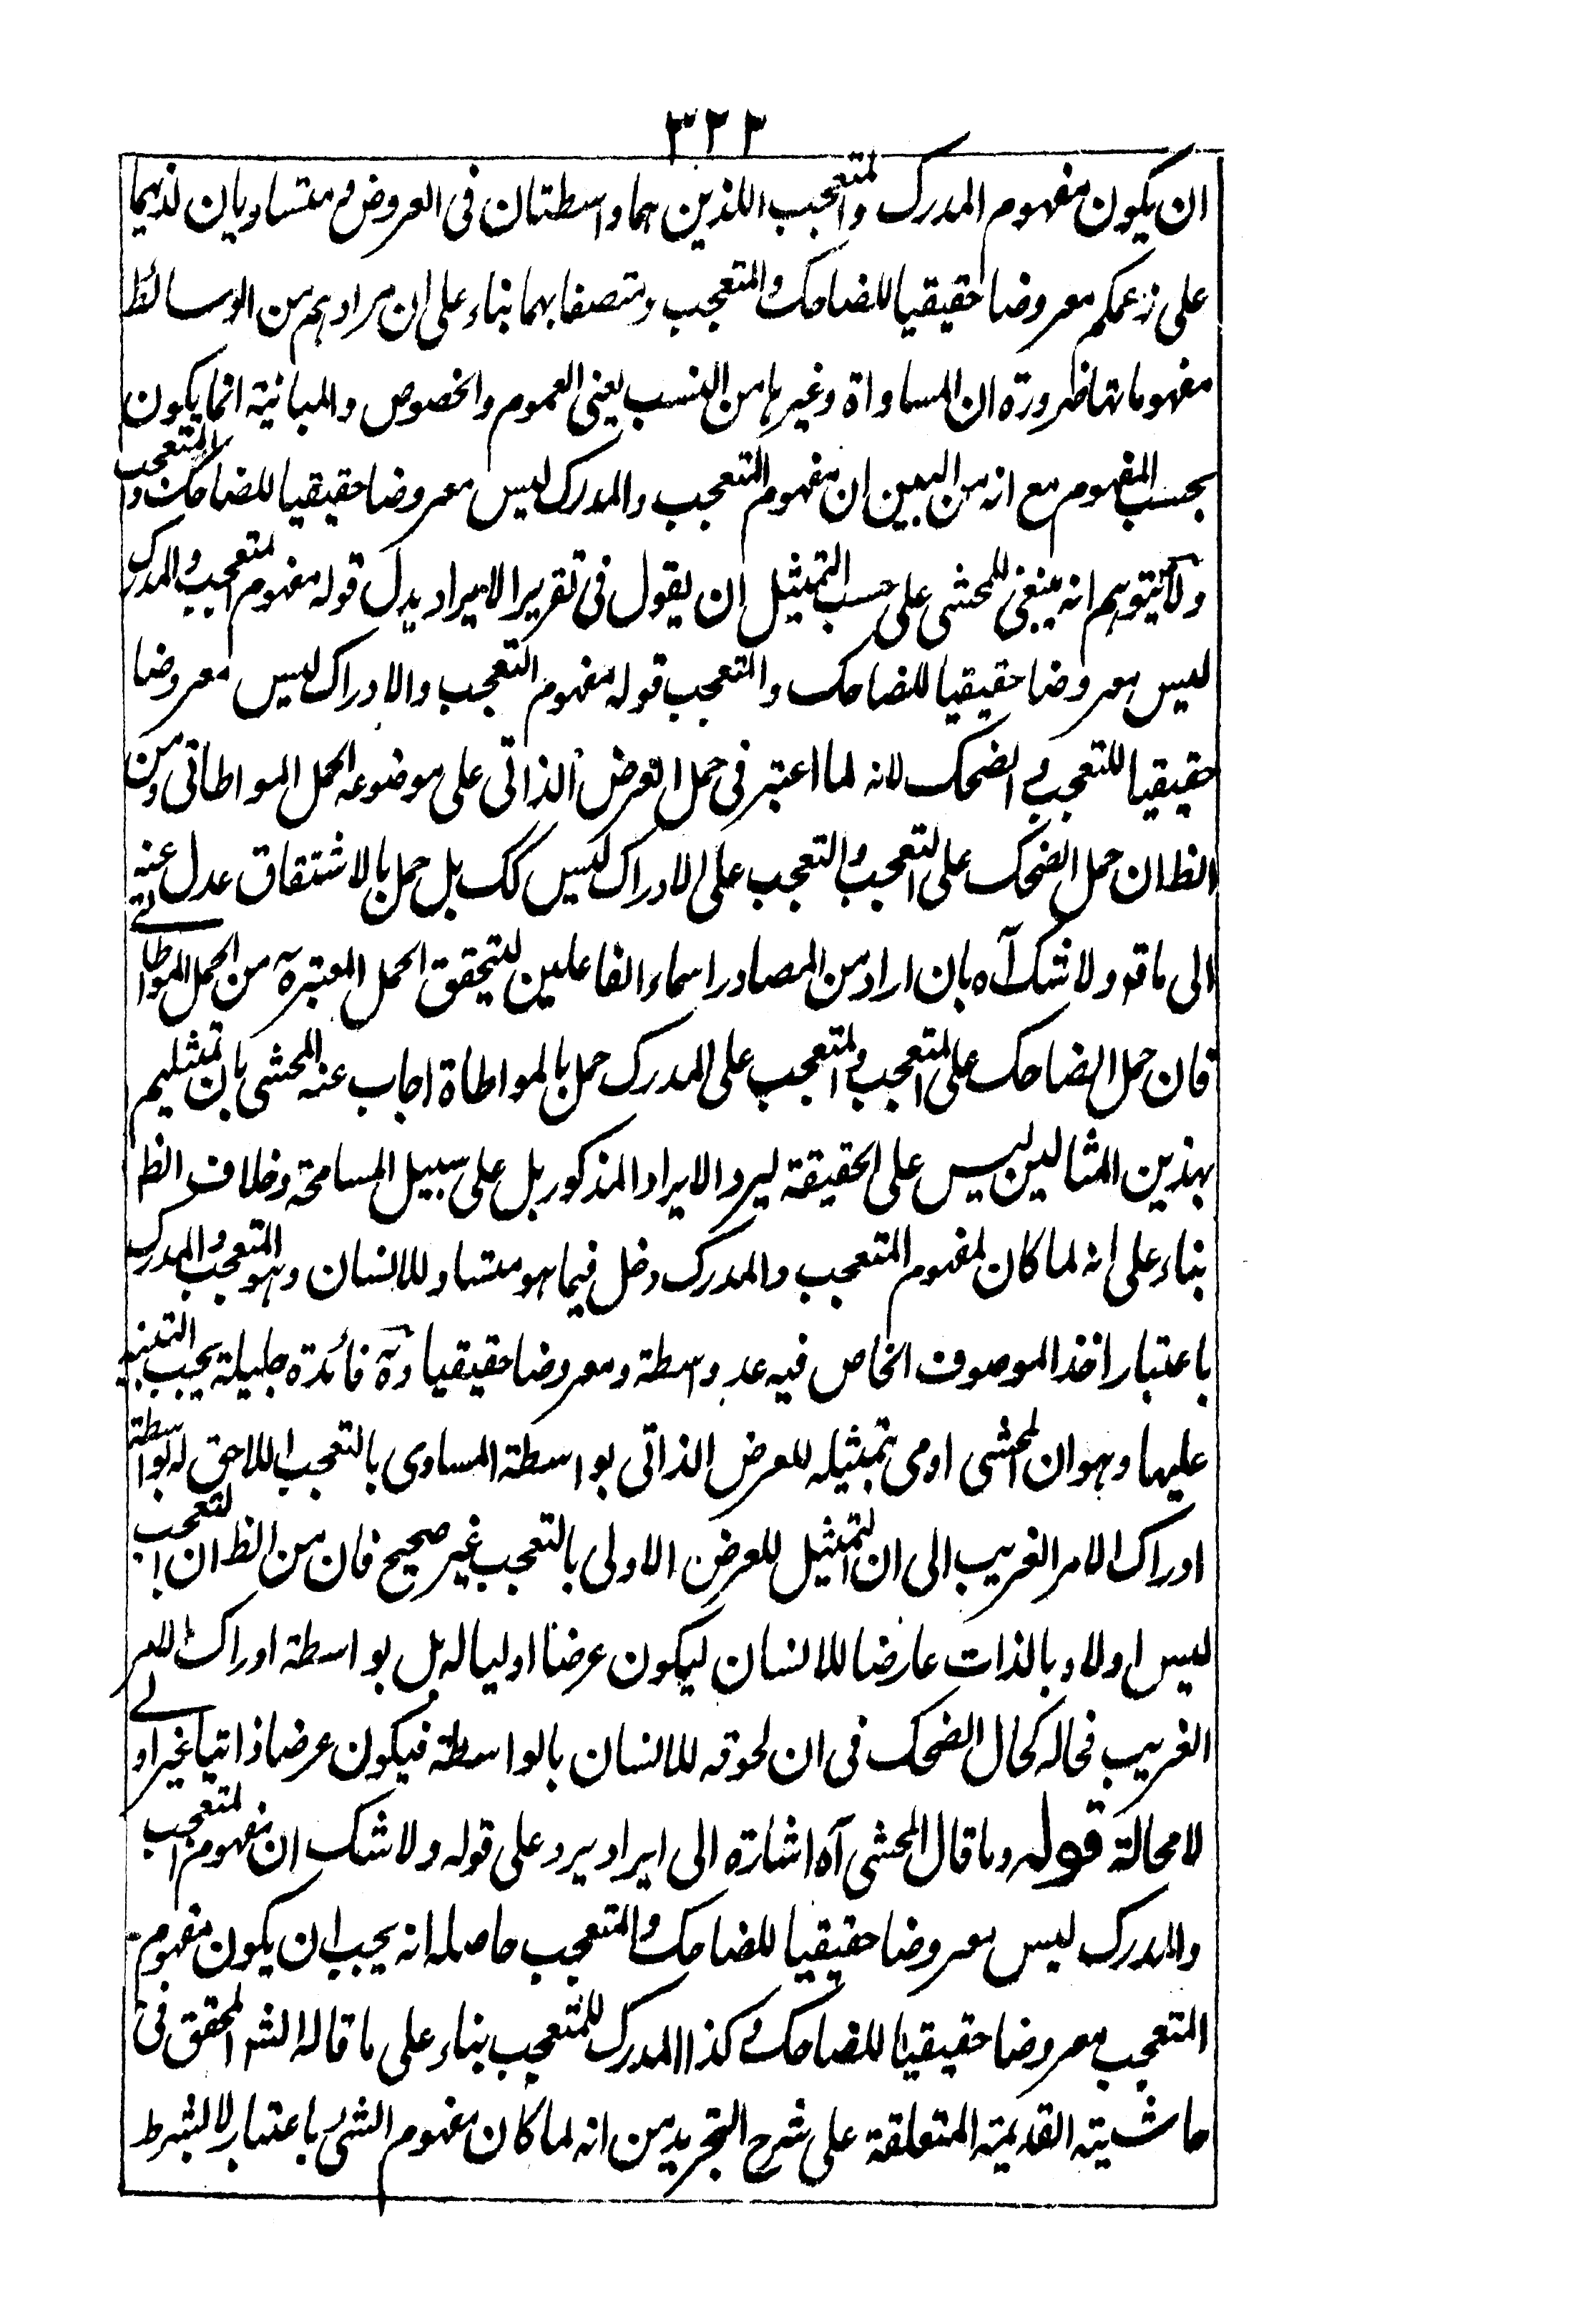 ٣٢٣
ان يكون مفهوم المدرك والمتعجب اللذين هما واسطتان فى العروض ومتساويان لذيهما
على زعمكم معروضا حقيقيا للضاحك والمتعجب ومتصفا بهما بناء على ان مرادهم من الوسائط
مفهوماتها ضرورة ان المساواة وغيرها من النسب يعنى العموم والخصوص والمبائنية انما يكون
بحسب المفهوم مع انه من البين ان مفهوم المتعجب والمدرك ليس معروضا حقيقيا للضاحك والمتعجب
ولا يتوهم انه ينبغى للمحشى على حسب التمثيل ان يقول فى تقرير الايراد بدل قوله مفهوم المتعجب والمدرك
ليس معروضا حقيقيا للضاحك والمتعجب قوله مفهوم التعجب والادراك ليس معروضا
حقيقيا للتعجب والضحك لانه لما اعتبر فى حمل العرض الذاتى على موضوعه الحمل المواطاتى ومن
الظ ان حمل الضحك على التعجب والتعجب على الادراك ليس كك بل حمل بالاشتقاق عدل عنه
الى ما قه ولا شك آه بان اراد من المصادر اسماء الفاعلين ليتحقق الحمل المعتبرة من الحمل المواطاتى
فان حمل الضاحك على المتعجب والمتعجب على المدرك حمل بالمواطاة اجاب عنه المحشى بان تمثيلهم
بهذين المثالين ليس على الحقيقة ليرد الايراد المذكور بل على سبيل المسامحة وخلاف الظ
بناء على انه لما كان لمفهوم المتعجب والمدرك دخل فيما هو متساو للانسان وهو المتعجب والمدرك
باعتبار اخذ الموصوف الخاص فيه عد واسطة ومعروضا حقيقيا وآه فائدة جليلة يجب التنبيه
عليها وهو ان المحشى اومى بتمثيله للعرض الذاتى بواسطة المساوى بالتعجب اللاحق له بواسطة
ادراك الامر الغريب الى ان التمثيل للعرض الاولى بالتعجب غير صحيح فان من الظ ان التعجب
ليس اولا وبالذات عارضا للانسان ليكون عرضا اوليا له بل بواسطة ادراك الامر
الغريب فحاله كحال الضحك فى ان لحوقه للانسان بالواسطة فيكون عرضا ذاتيا غير اولى
لا محالة قوله وما قال المحشى آه اشارة الى ايراد يرد على قوله ولا شك ان مفهوم المتعجب
والمدرك ليس معروضا حقيقيا للضاحك والمتعجب حاصله انه يجب ان يكون مفهوم
المتعجب معروضا حقيقيا للضاحك وكذا المدرك للمتعجب بناء على ما قاله الشه المحقق فى
حاشيته القديمة المتعلقة على شرح التجريد من انه لما كان مفهوم الشئ باعتبار لا بشرط